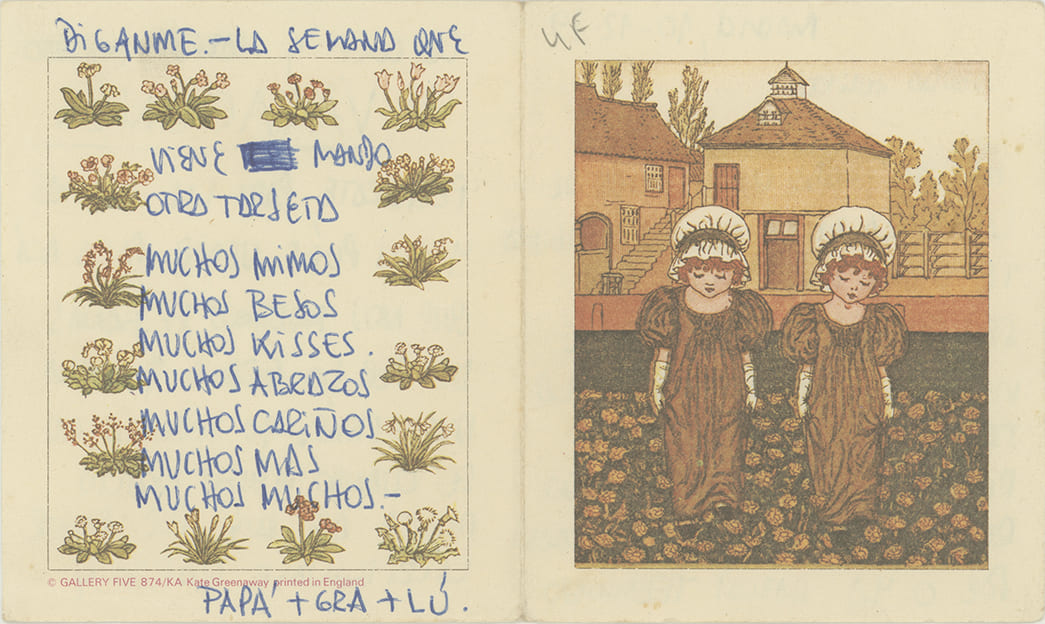 DIGANME.-LA SEMANA QUE
VIENE MANDO
OTRA TARJETA
MUCHOS MIMOS
MUCHOS BESOS
MUCHOS KISSES.
MUCHOS ABRAZOS
MUCHOS CARIÑOS
MUCHOS MAS
MUCHOS MUCHOS.-
© GALLERY FIVE 874/KA Kate Greenaway printed in England
PAPA' + GRA + LÚ.